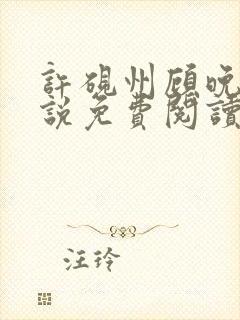 許硯州顧晚
說免費閱讀
汪玲